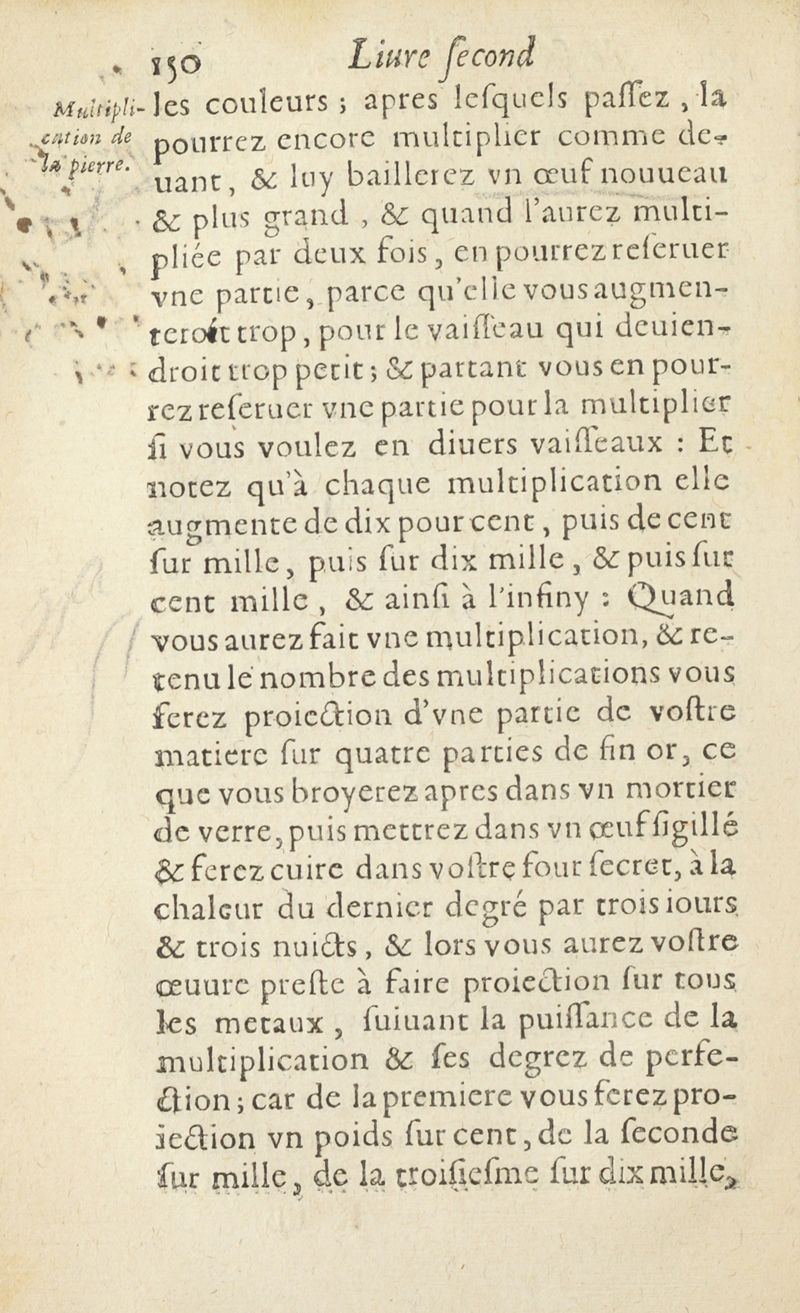 150 Liure ſecond
Multipli-
cation de
la pierre.
les couleurs ; apres leſquels paſſez , la
pourrez encore multiplier comme de-
uant, & luy baillerez vn œuf nouueau
& plus grand , & quand l'aurez multi-
pliée par deux fois, en pourrez reſeruer
vne partie, parce qu'elle vous augmen-
teroit trop, pour le vaiſſeau qui deuien-
droit trop petit ; & partant vous en pour-
rez reſeruer vne partie pour la multiplier
ſi vous voulez en diuers vaiſſeaux : Et
notez qu'à chaque multiplication elle
augmente de dix pour cent, puis de cent
ſur mille, puis ſur dix mille, & puis ſur
cent mille , & ainſi à l'infiny : Quand
vous aurez fait vne multiplication, & re-
tenu le nombre des multiplications vous
ferez proiection d'vne partie de voſtre
matiere ſur quatre parties de fin or, ce
que vous broyerez apres dans vn mortier
de verre, puis mettrez dans vn œuf ſigillé
& ferez cuire dans voſtre four ſecret, à la
chaleur du dernier degré par trois iours
& trois nuicts, & lors vous aurez voſtre
œuure preſte à faire proiection ſur tous
les metaux , ſuiuant la puiſſance de la
multiplication & ſes degrez de perfe-
ction ; car de la premiere vous ferez pro-
iection vn poids ſur cent, de la ſeconde
ſur mille, de la troiſieſme ſur dix mille,